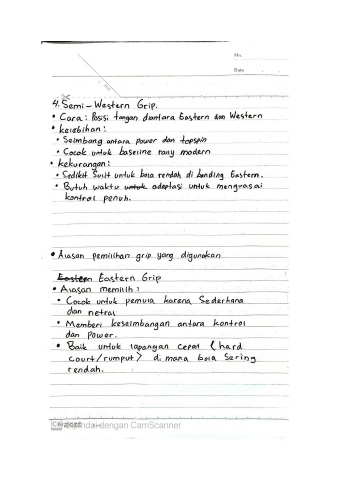 No.
Date
4. Semi - Western Grip.
• Cara: Posisi tangan diantara Eastern dan Western
• kelebihan:
• Seimbang antara power dan topspin
• Cocok untuk baseline rally modern
• kekurangan:
• Sedikit Sulit untuk bola rendah di banding Eastern.
• Butuh waktu untuk adaptasi untuk menguasai
kontrol penuh.
• Alasan pemilihan grip yang digunakan
Eastern Eastern Grip
• Alasan memilih:
• Cocok untuk pemula karena Sederhana
dan netral
• Memberi keseimbangan antara kontrol
dan Power.
• Baik untuk lapangan cepat (hard
court/rumput) di mana bola Sering
rendah.
dengan CamScanner